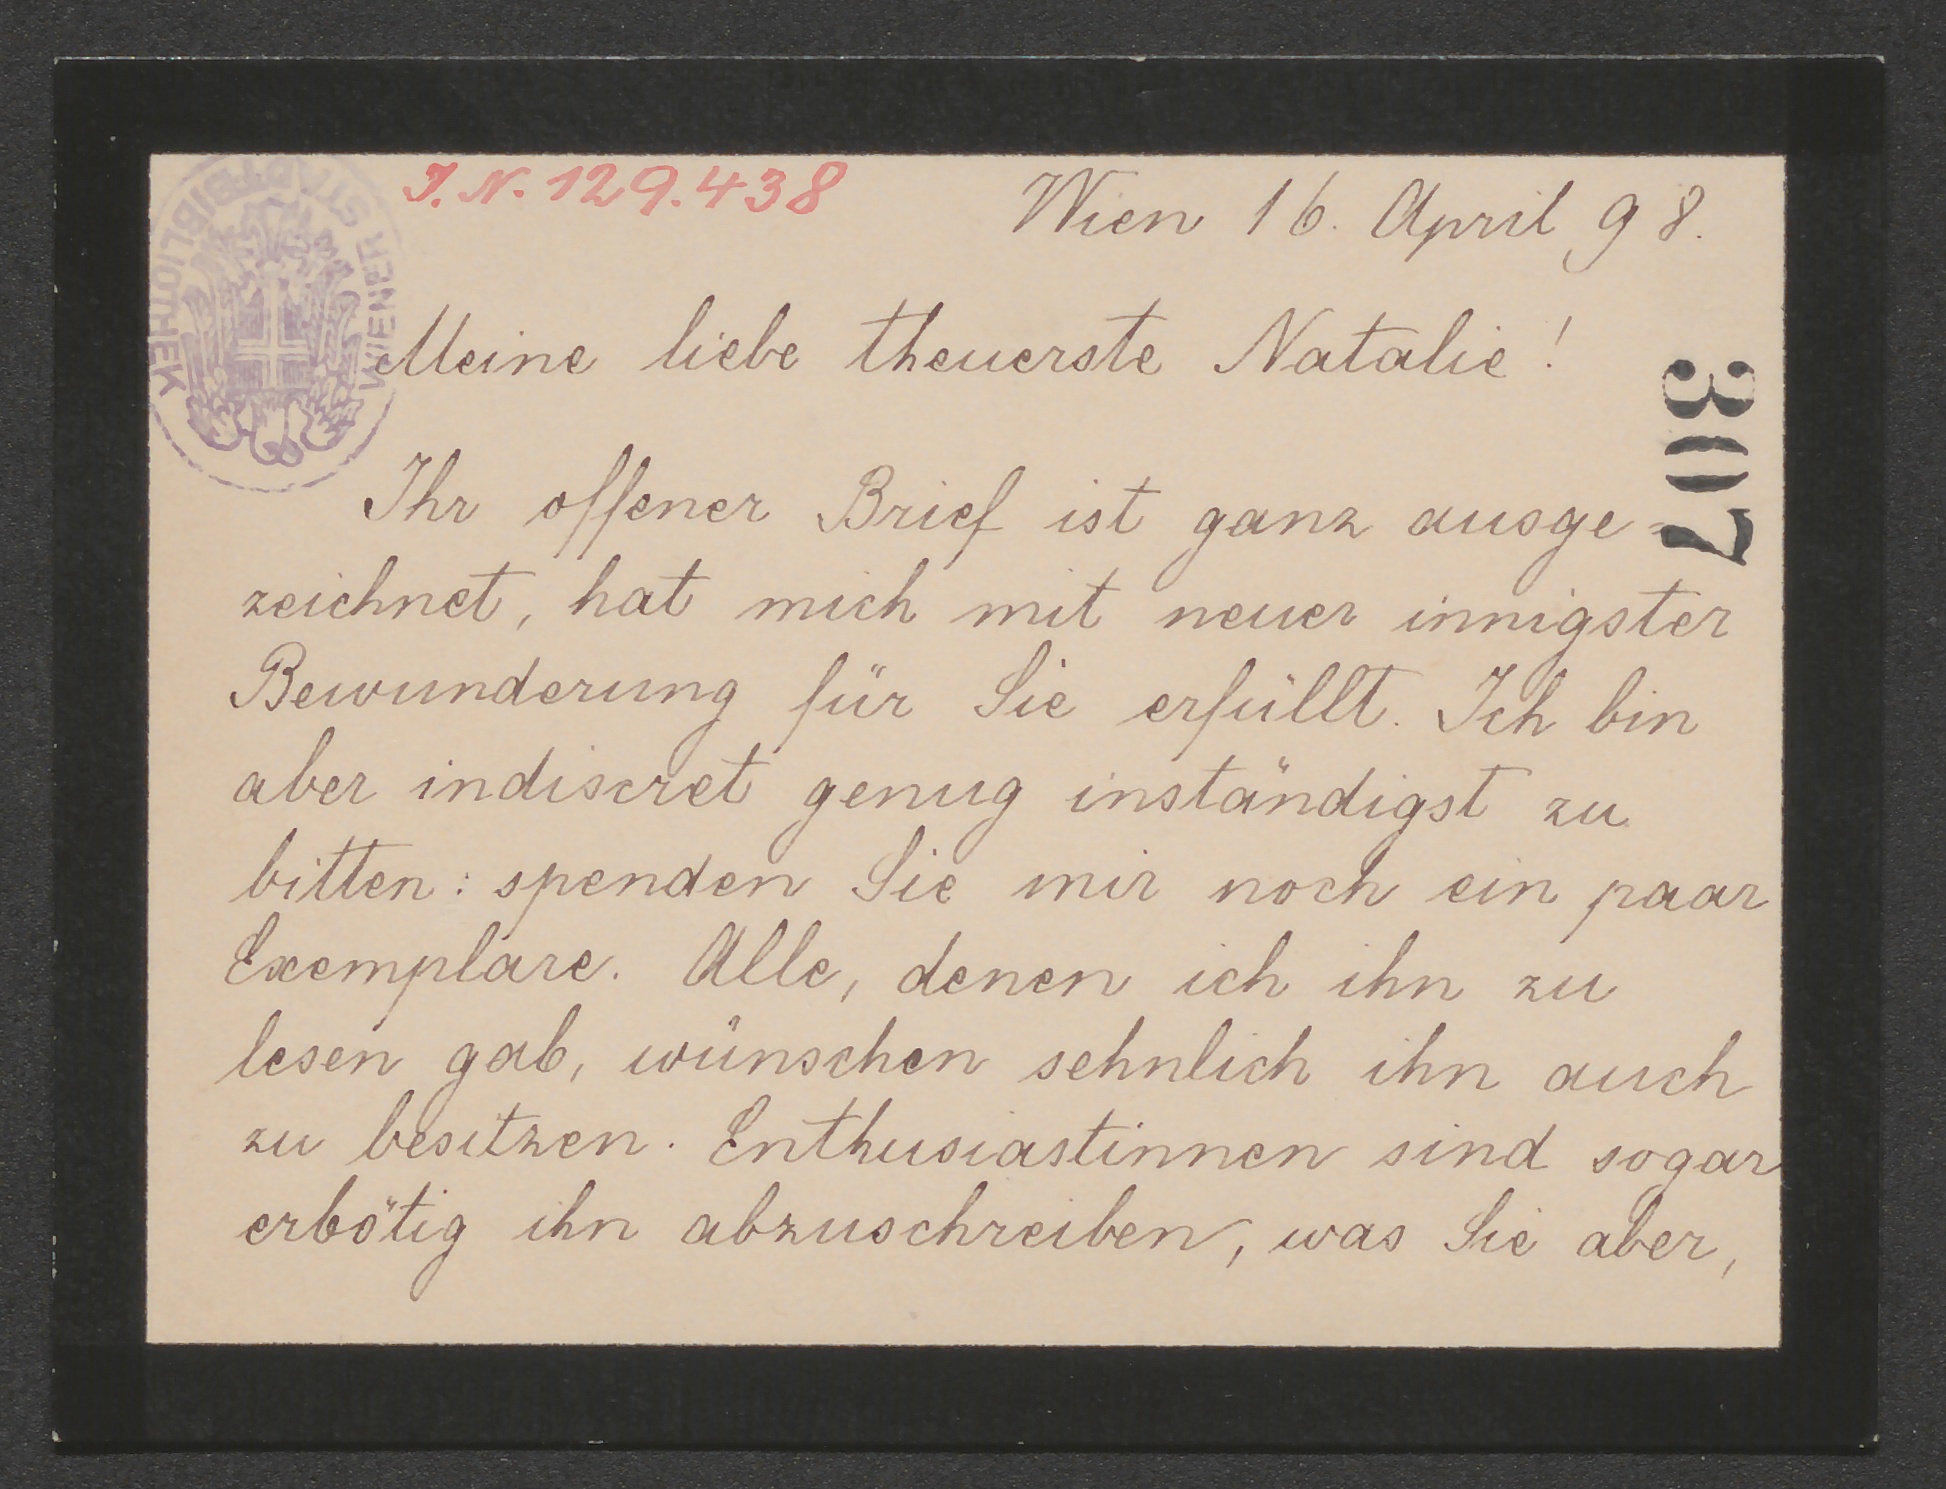 WIENER STADTBIBLIOTHEK
I. N. 129.438
Wien 16. April 98.
Meine liebe theuerste Natalie!
307
Ihr offener Brief ist ganz ausge=
zeichnet, hat mich mit neuer innigster
Bewunderung für Sie erfüllt. Ich bin
aber indiscret genug inständigst zu
bitten: spenden Sie mir noch ein paar
Exemplare. Alle, denen ich ihn zu
lesen gab, wünschen sehnlich ihn auch
zu besitzen. Enthusiastinnen sind sogar
erbötig ihn abzuschreiben, was Sie aber,